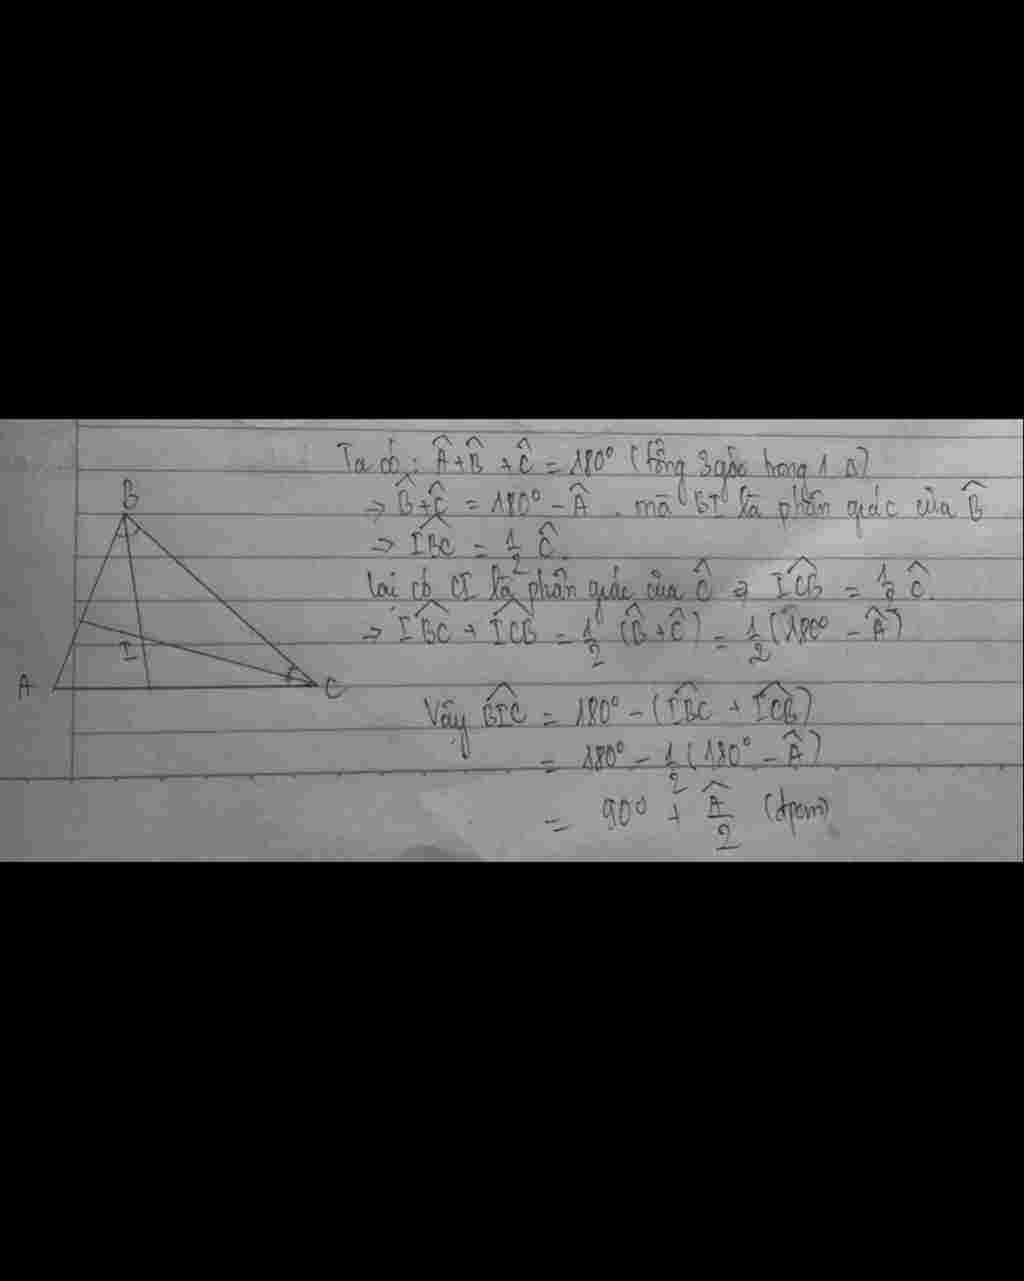 Ta có: Â + B̂ + Ĉ = 180° (tổng 3 góc trong 1 Δ)
⇒ B̂ + Ĉ = 180° - Â . mà BI là phân giác của B̂
⇒ \widehat{IBC} = \frac{1}{2} Ĉ.
Lại có CI là phân giác của Ĉ ⇒ \widehat{ICB} = \frac{1}{2} Ĉ.
⇒ \widehat{IBC} + \widehat{ICB} = \frac{1}{2} (B̂ + Ĉ) = \frac{1}{2} (180° - Â)
Vậy \widehat{BIC} = 180° - (\widehat{IBC} + \widehat{ICB})
= 180° - \frac{1}{2} (180° - Â)
= 90° + \frac{Â}{2} (đpcm)
B
I
A
C